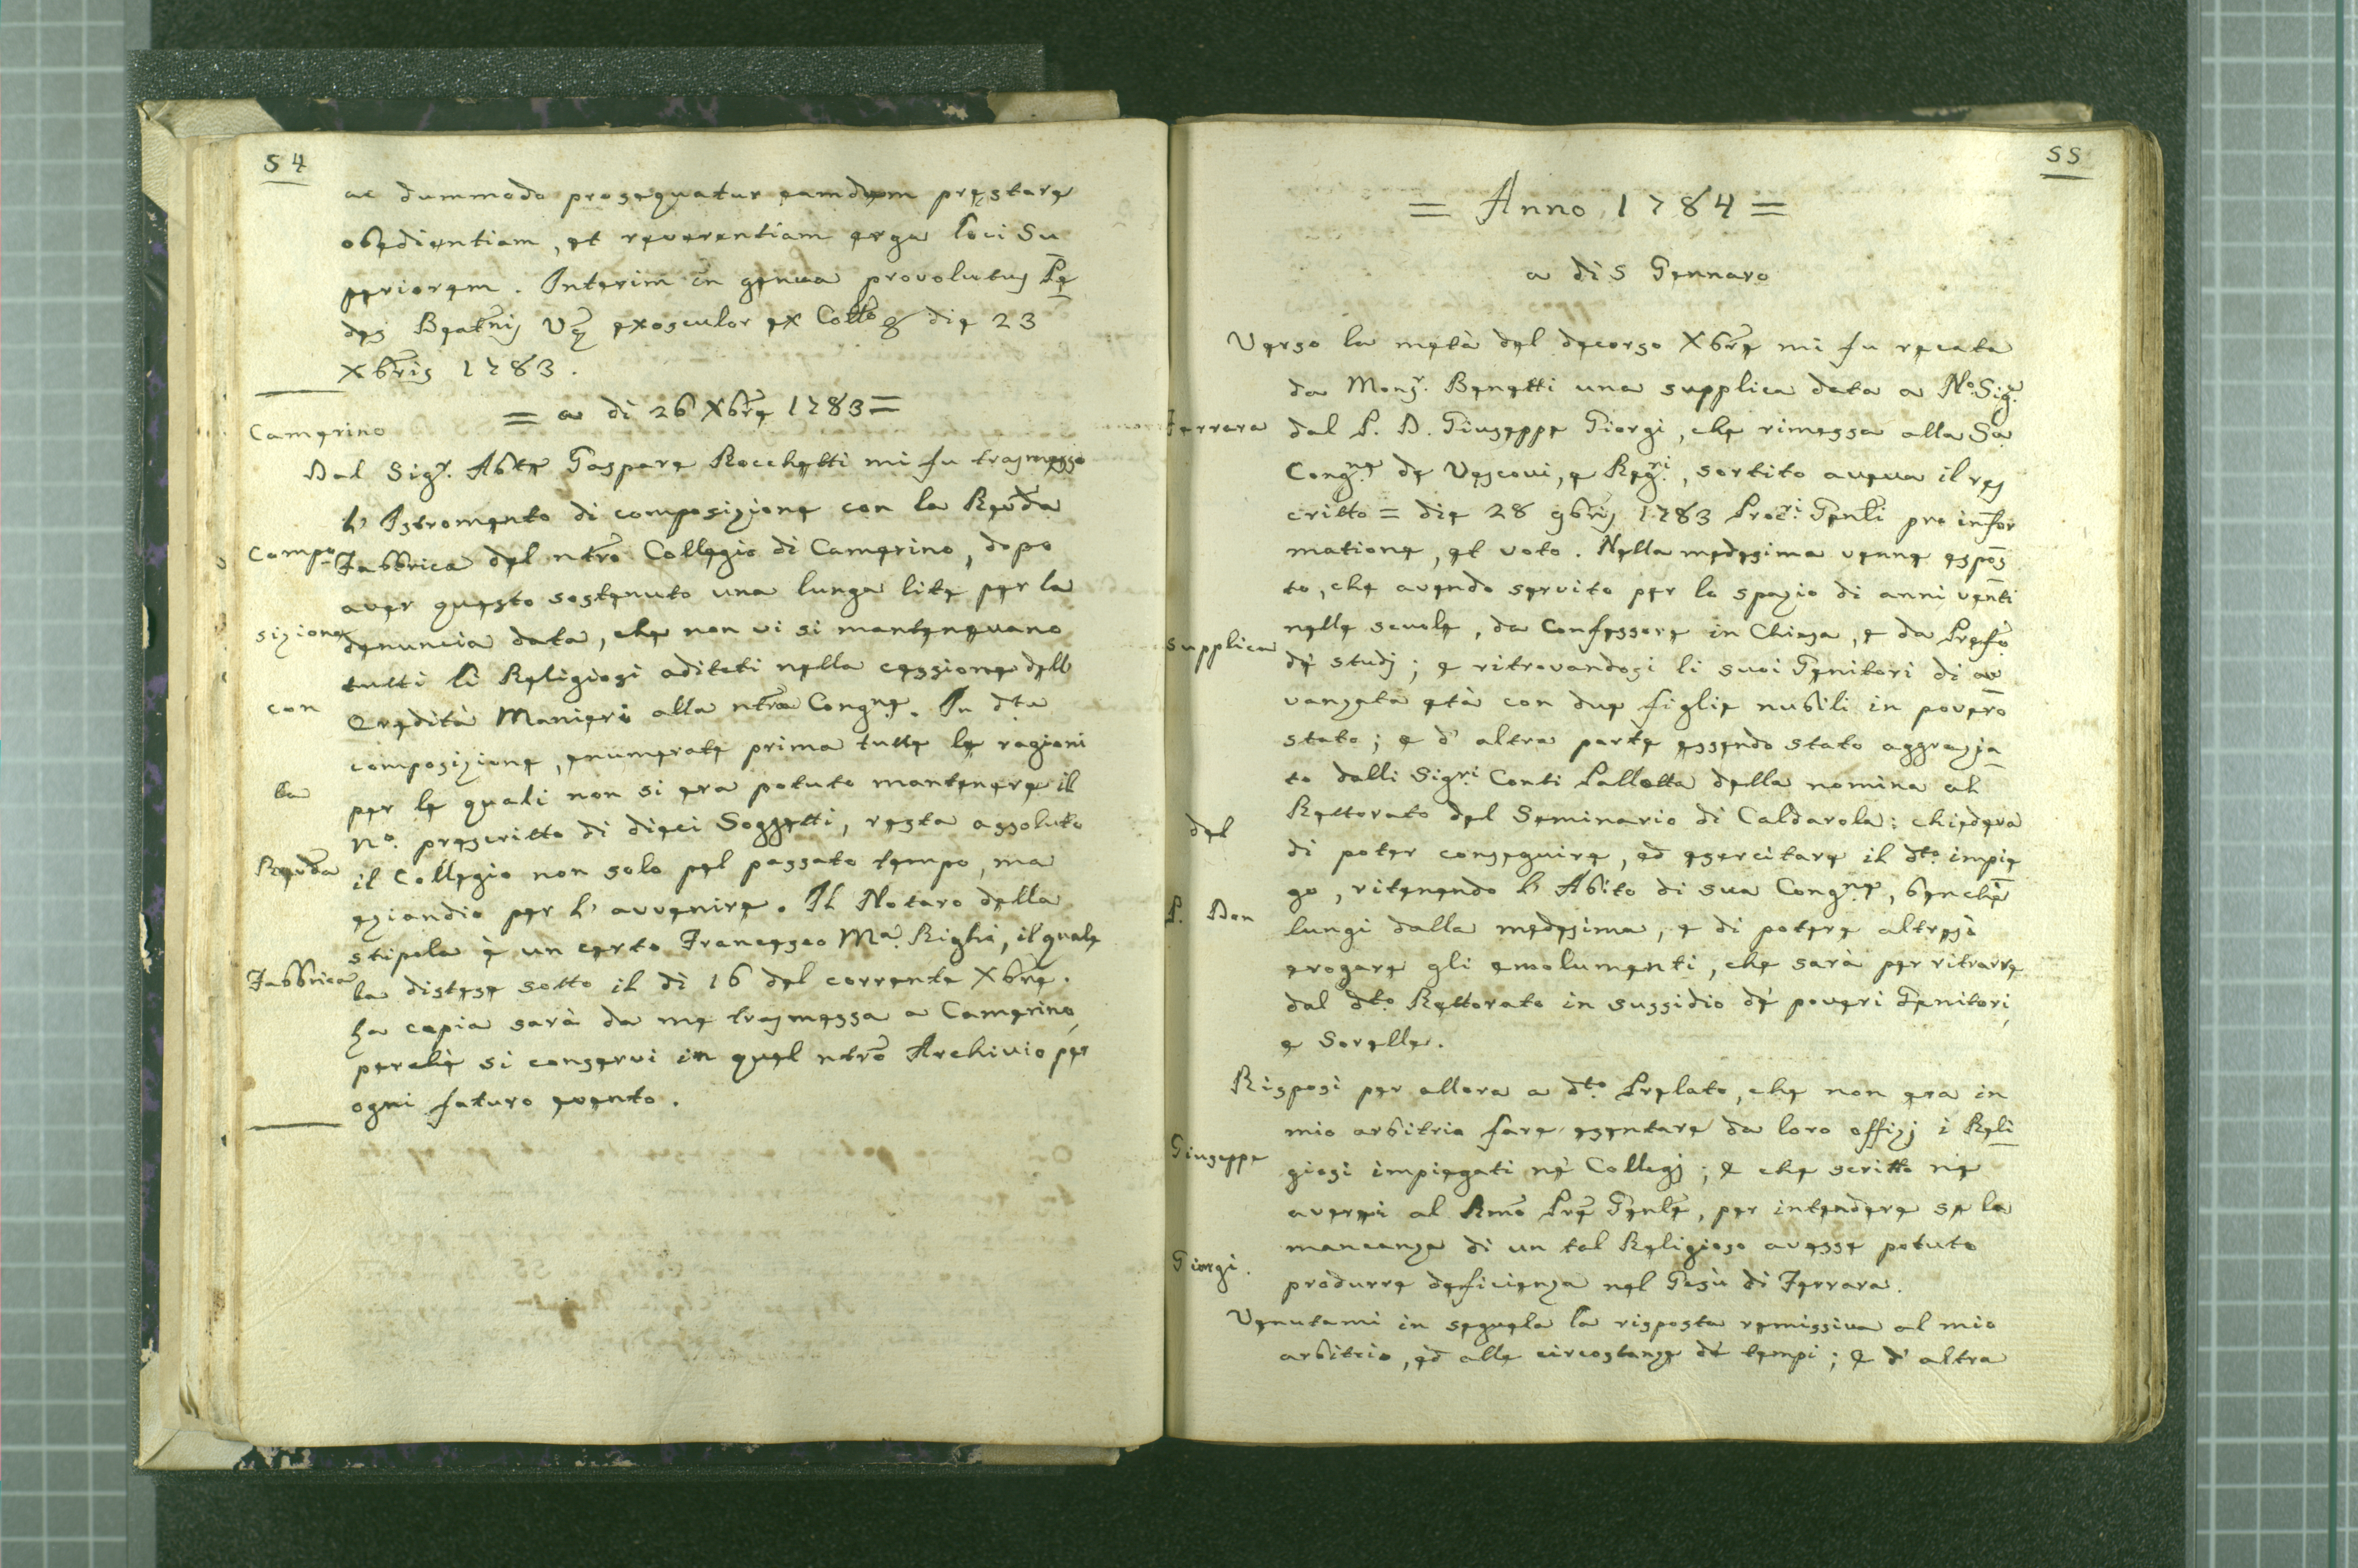 54
ac dummodo prosequatur eamdem pręstare
obedientiam, et reverentiam erga loci Su
periorem. Interim in genua provolutus Pe
des Beatnis Vę exosculor ex Collo & die 23
Xbris 1783.
= a di 26 Xbre 1783 =
Camerino
Dal Sigr. Abte Gaspare Rocchetti mi fu trasmesso
l' Istromento di composizione con la Revda
Compo- Fabbrica del ntro Collegio di Camerino, dopo
aver questo sostenuto una lunga lite per la
sizione denuncia data, che non vi si mantenevano
tutti li Religiosi aditati nella cessione dell
con Eredità Manieri alla ntra Congne. In dta
composizione, enumerate prima tutte le ragioni
la per le quali non si era potuto mantenere il
no. prescritto di dieci Soggetti, resta assoluto
Revda il Collegio non solo pel passato tempo, ma
eziandio per l' avvenire. Il Notaro della
stipola è un certo Francesco Ma. Righi, il quale
Fabbrica la distese sotto il dì 16 del corrente Xbre.
La copia sarà da me trasmessa a Camerino,
perchè si conservi in quel ntro Archivio per
ogni futuro evento.
55
= Anno 1784 =
a di 5 Gennaro
Verso la metà del decorso Xbre mi fu recata
da Monsr. Benetti una supplica data a No. Sigr.
Ferrara dal P. D. Giuseppe Giorgi, che rimessa alla Sa
Congne. de Vescovi, e Regri., sortito aveva il res
critto = die 28 9bris 1783 Procri. Genli pro infor
matione, et voto. Nella medesima venne espos
to, che avendo servito per lo spazio di anni venti
supplica nelle scuole, da Confessore in Chiesa, e da Prefo
dè studj; e ritrovandosi li suoi Genitori di a
vanzata età con due figlie nubili in povero
stato; e d' altra parte essendo stato aggrazia
to dalli Sigri Conti Pallotta della nomina al
del Rettorato del Seminario di Caldarola: chiedeva
di poter conseguire, ed esercitare il dto. impie
P. Don go, ritenendo l' Abito di sua Congne, benchè
lungi dalla medesima, e di potere altresì
erogare gli emolumenti, che sarà per ritrarre
dal dto. Rettorato in sussidio dè poveri Genitori,
e Sorelle.
Risposi per allora a dto. Prelato, che non era in
mio arbitrio fare esentare da loro offizj i Reli
Giuseppe giosi impiegati nè Collegj; e che scritto ne
averei al Rmo Pre Genle, per intendere se la
mancanza di un tal Religioso avesse potuto
Giorgi. produrre deficienza nel Gesù di Ferrara.
Venutami in seguela la risposta remissiva al mio
arbitrio, ed alle circostanze dè tempi; e d' altra